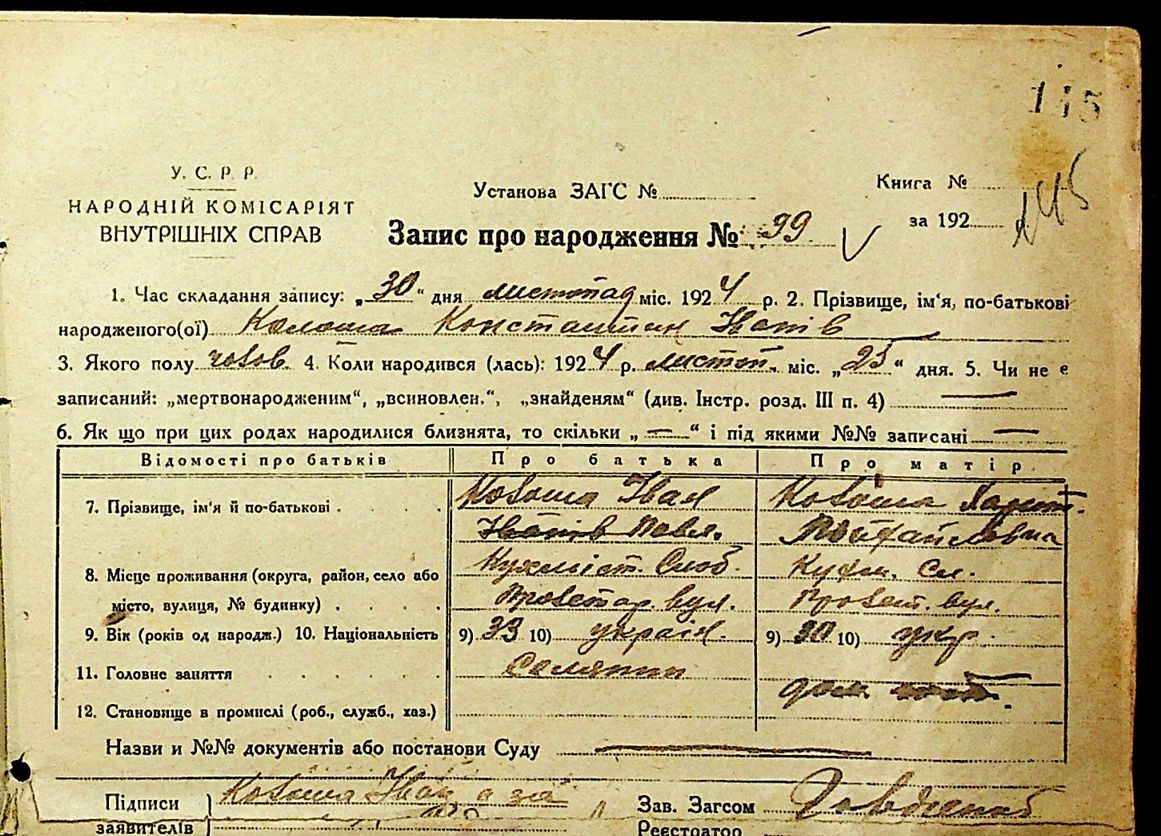 115
145
У. С. Р. Р.
НАРОДНІЙ КОМІСАРІЯТ
ВНУТРІШНІХ СПРАВ
Установа ЗАГС №
Книга №
за 192
Запис про народження № 99
1. Час складання запису: „30“ дня листопад міс. 1924 р. 2. Прізвище, ім'я, по-батькові
народженого(ої) Колоша Константин Іванів
3. Якого полу чолов. 4. Коли народився (лась): 1924 р. листоп. міс. „25“ дня. 5. Чи не є
записаний: „мертвонародженим“, „всиновлен.“, „знайденям“ (див. Інстр. розд. III п. 4) —
6. Як що при цих родах народилися близнята, то скільки „—“ і під якими №№ записані —
Відомості про батьків Про батька Про матір
7. Прізвище, ім'я й по-батькові Колоша Іван Колоша
Іванів Павл. Михайловна
8. Місце проживання (округа, район, село або Слоб. Сл.
місто, вулиця, № будинку) Пролетар. вул. Пролет. вул.
9. Вік (років од народж.) 10. Національність 9) 33 10) україн. 9) 30 10) укр.
11. Головне заняття Селянин
дом.
12. Становище в промислі (роб., служб., хаз.)
Назви и №№ документів або постанови Суду —
Підписи Колоша Іван а за Зав. Загсом
заявителів Реєстратор